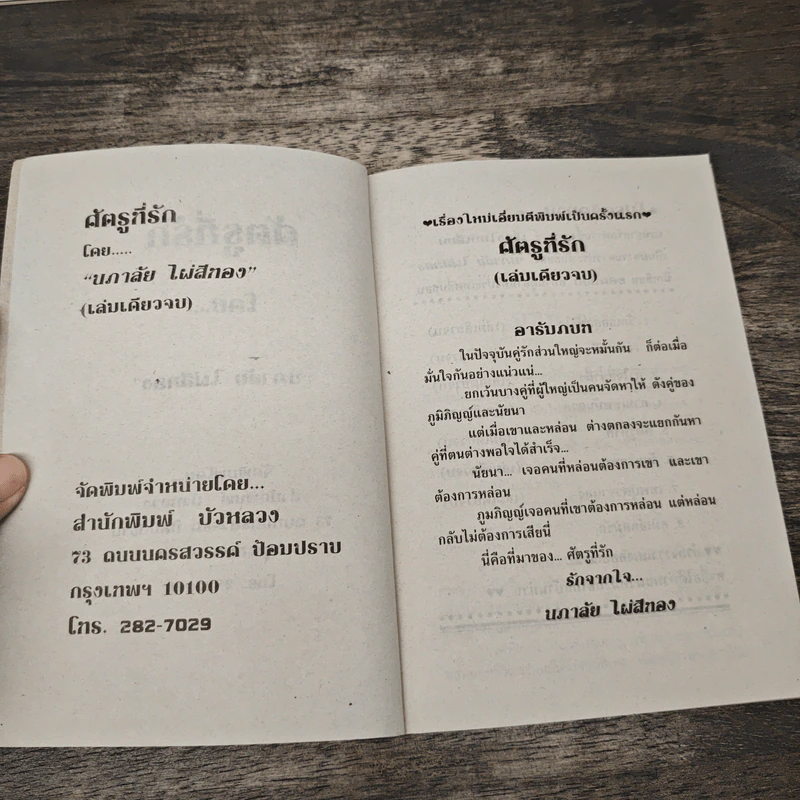 ศัตรูที่รัก
โดย.....
“นภาลัย ไผ่สีทอง”
(เล่มเดียวจบ)
จัดพิมพ์จำหน่ายโดย...
สำนักพิมพ์ บัวหลวง
73 ถนนนครสวรรค์ ป้อมปราบ
กรุงเทพฯ 10100
โทร. 282-7029
♥เรื่องใหม่เอี่ยมตีพิมพ์เป็นครั้งแรก♥
ศัตรูที่รัก
(เล่มเดียวจบ)
อารัมภบท
ในปัจจุบันคู่รักส่วนใหญ่จะหมั้นกัน ก็ต่อเมื่อ
มั่นใจกันอย่างแน่วแน่...
ยกเว้นบางคู่ที่ผู้ใหญ่เป็นคนจัดหาให้ ดังคู่ของ
ภูมิภิญญ์และนัยนา
แต่เมื่อเขาและหล่อน ต่างตกลงจะแยกกันหา
คู่ที่ตนต่างพอใจได้สำเร็จ...
นัยนา... เจอคนที่หล่อนต้องการเขา และเขา
ต้องการหล่อน
ภูมภิญญ์เจอคนที่เขาต้องการหล่อน แต่หล่อน
กลับไม่ต้องการเสียนี่
นี่คือที่มาของ... ศัตรูที่รัก
รักจากใจ...
นภาลัย ไผ่สีทอง